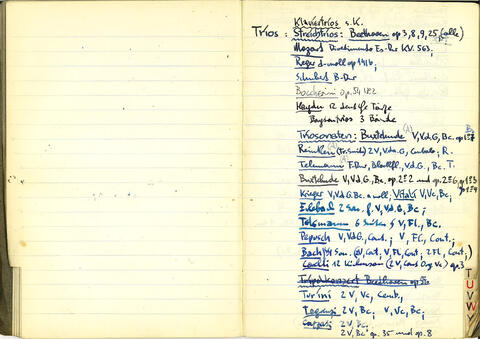 Klaviertrios s. K.
Trios: Streichtrios: Beethoven op 3, 8, 9, 25 (alle)
Mozart Divertimento Es-Dur KV. 563,
Reger d-moll op 141b;
Schubert B-Dur
Boccherini op. 54 N: 2
Haydn 12 deutsche Tänze
Barytontrios 3 Bände
Triosonaten: Buxtehude V, V.d.G, Bc, op 1
Reinken 2V, V.d.G., Cembalo; R.
Telemann F-Dur, Blockfl, V.d.G., Bc. T.
Buxtehude V, V.d.G, Bc. op 2 № 2 und op. 2 № 6, op 1 № 3
op 1 № 4
Krieger V, V.d.G. Bc. a moll; Vitali V, Vc, Bc;
Erlebach 2 Son. f. V, V.d.G, Bc;
Telemann 6 Suiten f V, Fl, Bc.
Pepusch V, V.d.G., Cont.; V, Fl, Cont.;
Bach Son. (2V, Cont; V, Fl, Cont; 2 Fl, Cont,)
Corelli 12 (2 V, Cont Org, Vc) op. 3
Tripelkonzert Beethoven op 56
Turini 2 V, Vc, Cont.,
2V, Bc; V, Vc, Bc;
2V, Bc;
2V, Bc op. 35 und op. 8
T
U
V
W